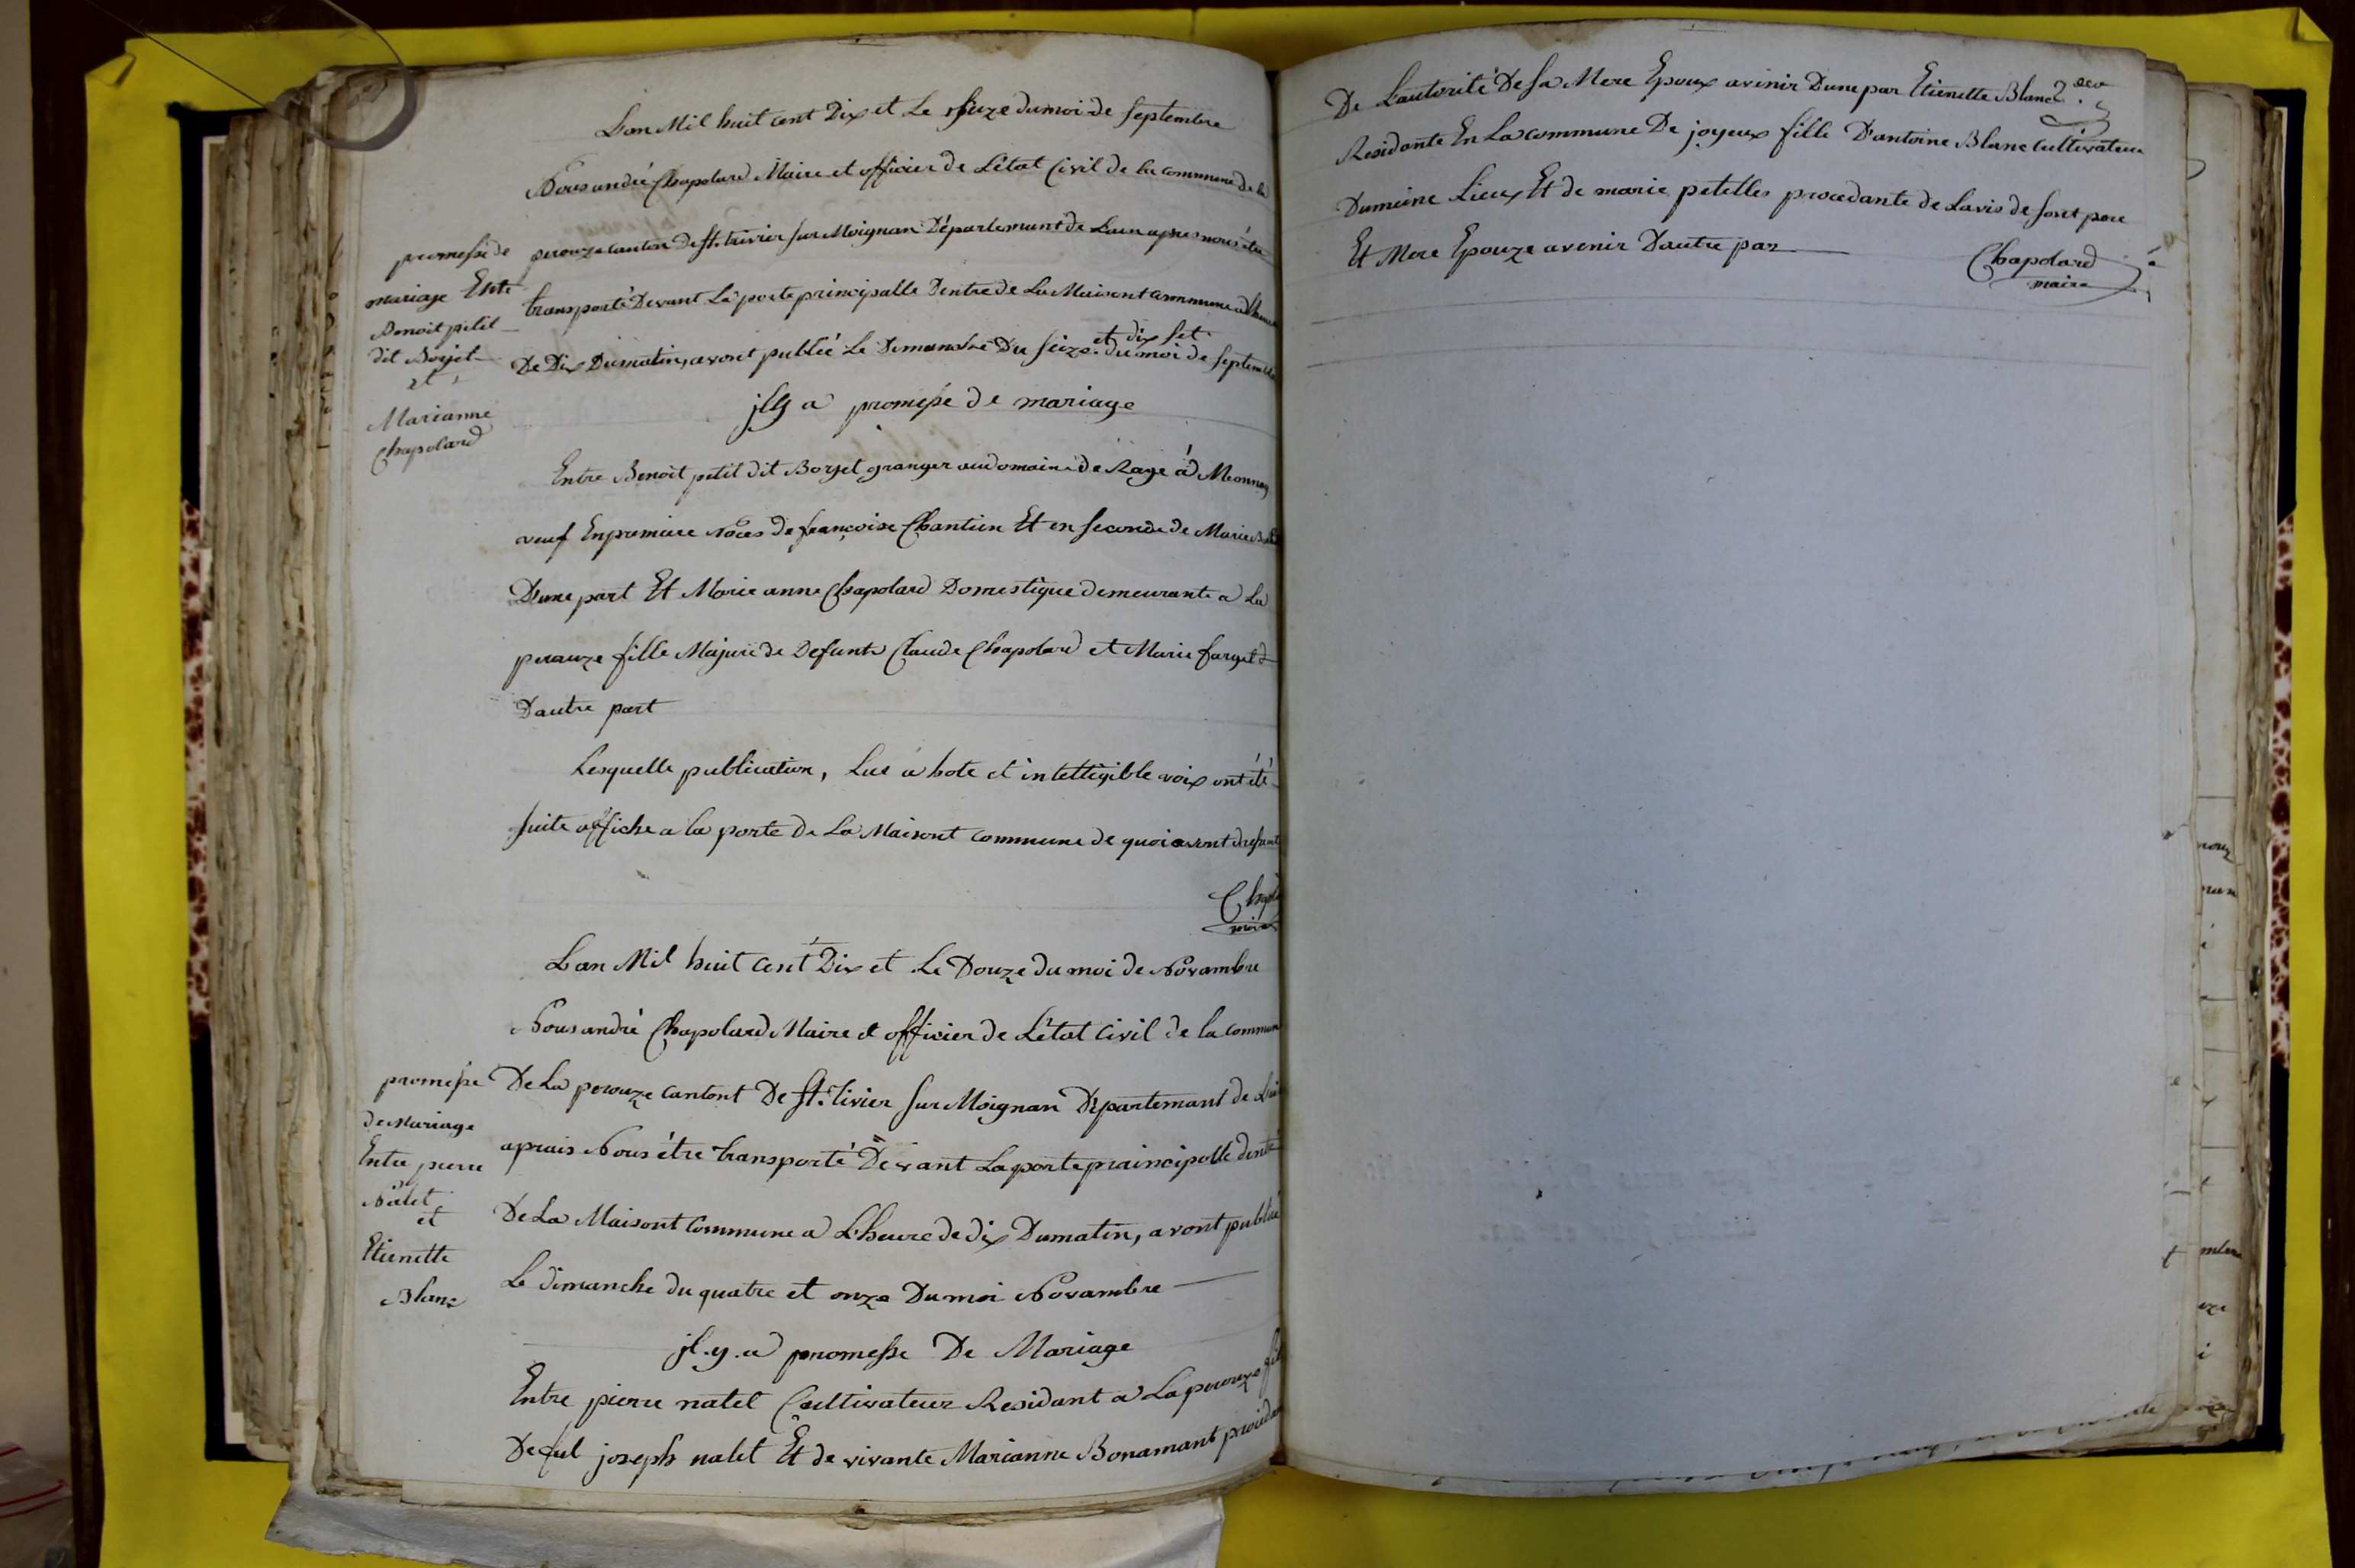 Lan Mil huit cent Dix et Le seize du moi de septembre
Nous andré Chapolard Maire et officier de Létat Civil de la commune de la
perouze canton de st. trivier sur Moignan Département de Lain apres nous être
transporté Devant La porte principalle Dentre de La Maisont commune a lheure
De Dix Dumatin, avont publié Le Dimanche Du seize et dix set du moi de septembre
jlY a promesse de mariage
promesse de
mariage Entre
Benoit petit
dit Borjet
et
Marianne
Chapolard
Entre Benoit petit dit Borjet granger au domaine de Rage á Meonnay
veuf En premiere Noces de françoise Chantien Et en seconde de Marie
D'une part Et Marie anne Chapolard Domestique demeurante a La
perauze fille Majure de Defunts Claude Chapolard et Marie farget
D'autre part
Lesquelle publication, Lue a hote et intettigible voix ont été
suite affiche a la porte de La Maisont commune de quoi avont
Chapo
maire
Lan Mil huit cent Dix et Le Douze du moi de Novambre
Nous andré Chapolard Maire et officier de Létat Civil de la commun
De La perouze cantont De st. tivier sur Moignan Départemant de Lain
apruis Nous étre transporté Devant La porte prainsipolle dentré
De La Maisont Commune a L'heure de dix Dumatin, avont publié
Le dimanche du quatre et onze Du moi Novambre
jl.y.a promesse De Mariage
promesse
de Mariage
Entre pierre
Natet
et
Etienette
Blanc
Entre pierre natet Cultivateur Residant a La perouze fil
De fut joseph natet Et de vivante Marianne Bonamant procédant
De L'autorité De sa Mere Epoux avinir Dune par Etienette Blanc
Residante En La commune De joyeux fille D'antoine Blanc Cultivateur
Dumeine Lieux Et de marie petelles procedante de Lavis de sont pere
Et Mere Epouze avenir Dautre par
Chapolard
maire